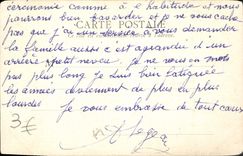 cérémonie comme à l'habitude et nous
pourrons bien bavarder et je ne vous cache
CARTE POSTALE
pas que j'ai un service à vous demander
la famille aussi c'est agrandie d'un
arrière petit neveu. Je ne vous en mets
pas plus long je suis bien fatiguée
les années deviennent de plus en plus
lourdes Je vous embrasse de tout cœur
3€